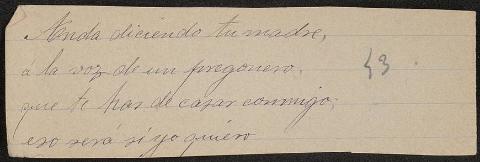 Anda diciendo tu madre,
á la voz de un pregonero,
que te has de casar conmigo;
eso será si yo quiero
43